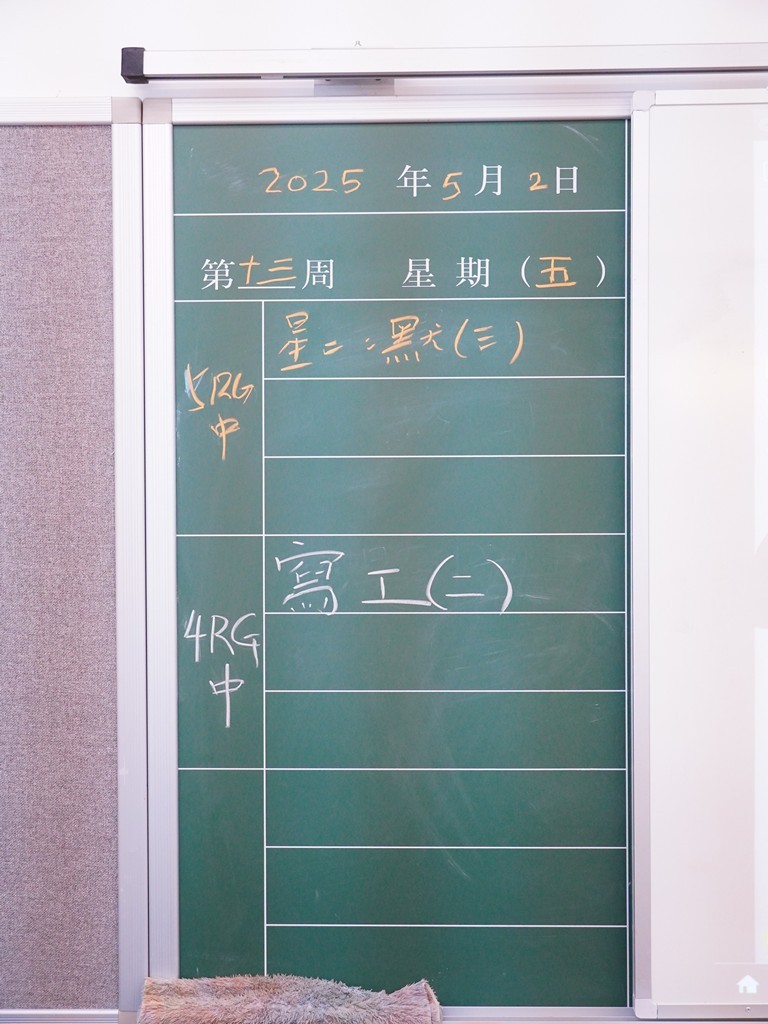 2025 年 5 月 2 日
第十三周 星期（五）
5RG
中
星二：默(三)
4RG
中
寫工(二)